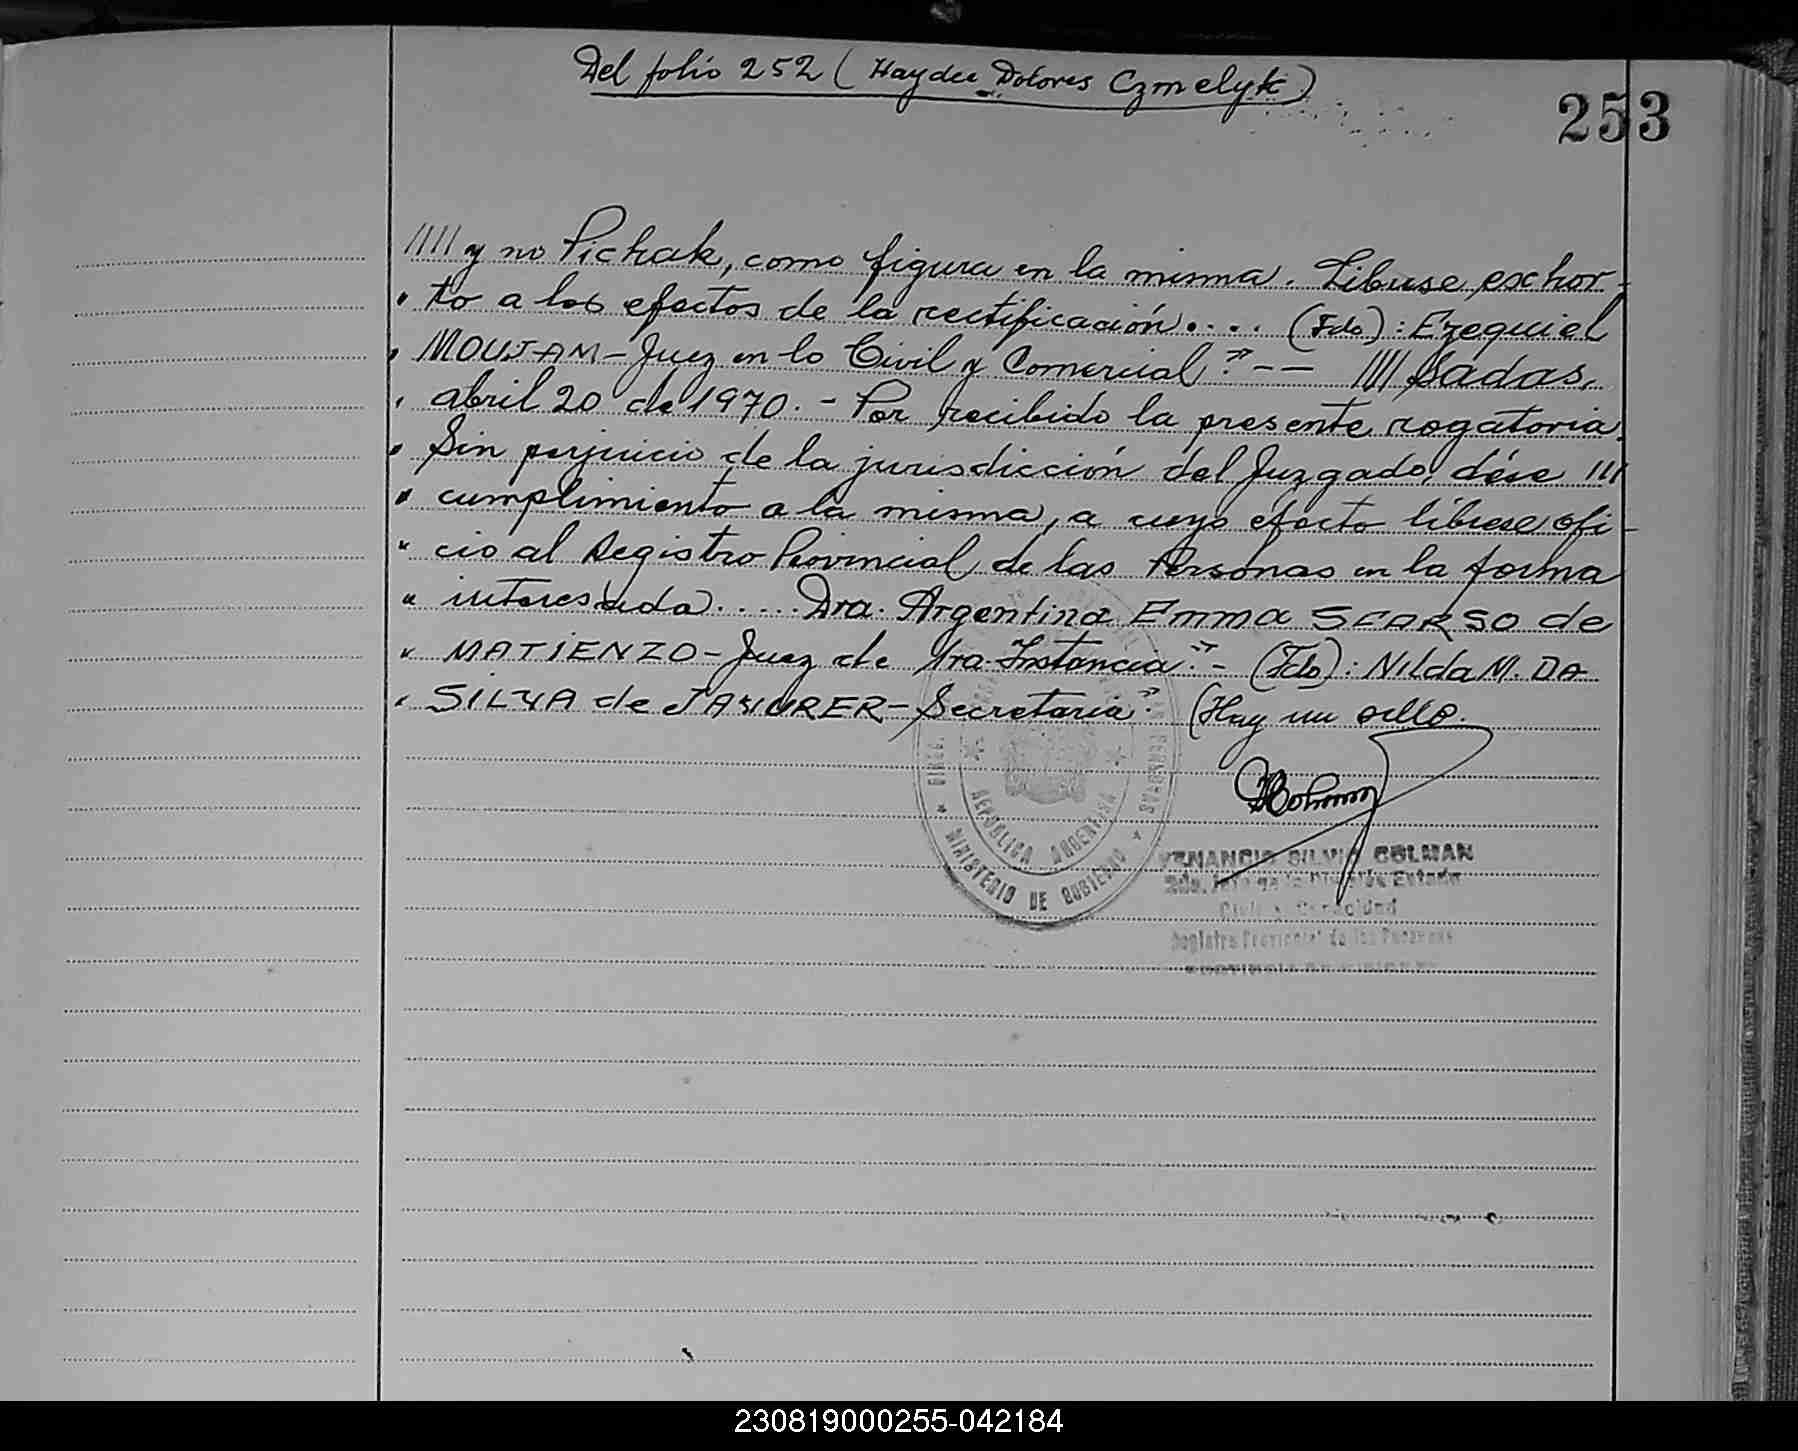 Del folio 252 (Haydee Dolores Czmelyk)
253
//// y no Pichak, como figura en la misma. Líbrese exhor-
" to a los efectos de la rectificación.... (Fdo): Ezequiel
" MOUJAM - Juez en lo Civil y Comercial".-- //// sadas,
" abril 20 de 1970.- Por recibido la presente rogatoria.
" Sin perjuicio de la jurisdicción del Juzgado, dése ///
" cumplimiento a la misma, a cuyo efecto líbrese ofi-
" cio al Registro Provincial de las Personas en la forma
" interesada..... Dra. Argentina Emma SCARSO de
" MATIENZO - Juez de 1ra. Instancia".- (Fdo): Nilda M. DA
" SILVA de JAVURER - Secretaria". (Hay un sello.
REPUBLICA ARGENTINA
MINISTERIO DE GOBIERNO
VENANCIO SILVIO COLMAN
2do. Jefe de la División Estado
Civil y Capacidad
Registro Provincial de las Personas
PROVINCIA DE MISIONES
230819000255-042184